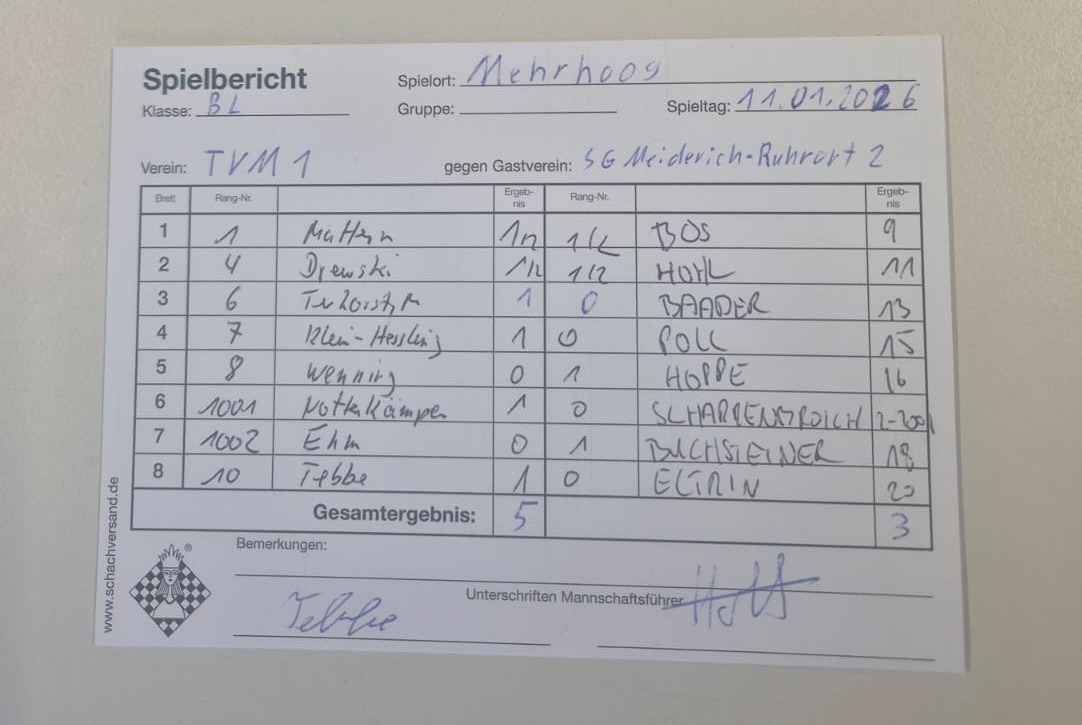 Spielbericht
Spielort: Mehrhoog
Klasse: BL Gruppe: Spieltag: 11.01.2026
Verein: TVM 1 gegen Gastverein: SG Meiderich-Ruhrort 2
Brett Rang-Nr. Ergeb-nis Rang-Nr. Ergeb-nis
1 1 Mattern 1/2 1/2 BOS 9
2 4 Drewski 1/2 1/2 HOHL 11
3 6 1 0 BAADER 13
4 7 Klein-Hessling 1 0 POLL 15
5 8 Wenning 0 1 HOPPE 16
6 1001 Notterkämper 1 0 2-2001
7 1002 Ehm 0 1 BUCHSTEINER 18
8 10 Tebbe 1 0 20
Gesamtergebnis: 5 3
Bemerkungen:
Unterschriften Mannschaftsführer
Tebbe
www.schachversand.de
®